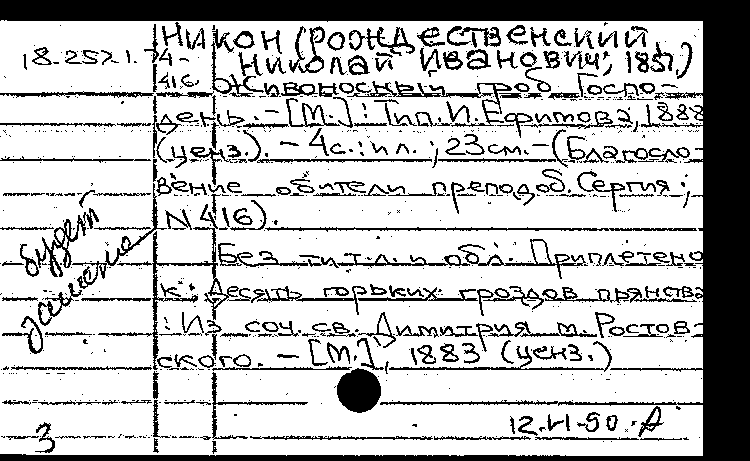 Никон (Рождественский,
18.2521.74-
Николай Иванович; 1851,)
416 Живоносный гроб Госпо-
день. - [М.] : Тип. И. Ефимова, 1888
(ценз.). - 4с. : ил. ; 23см. - (Благосло-
вение обители преподоб. Сергия ;
N 416).
Без тит. л. и обл. Приплетено
к : Десять горьких гроздов пьянства
: Из соч. св. Димитрия м. Ростов-
ского. - [М.], 1883 (ценз.)
будет
12.VI-90.
3